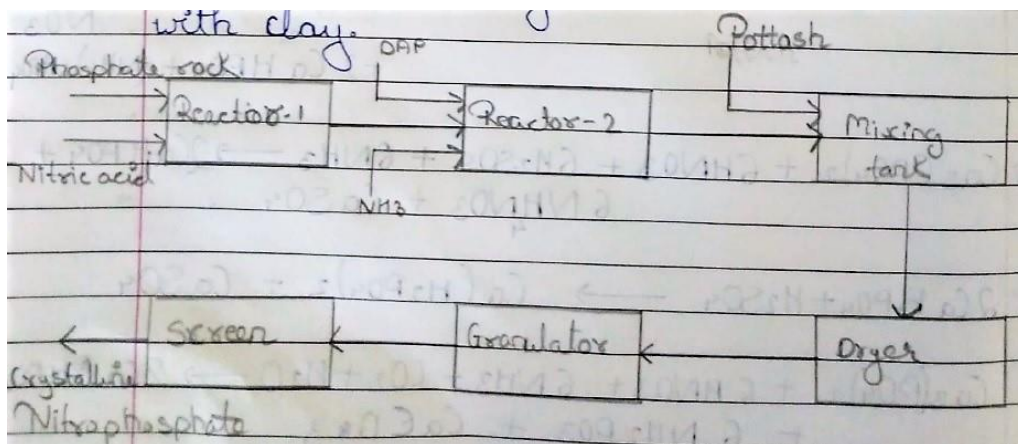 with clay.
DAP
Pottash
Phosphate rock
Reactior-1
Reactor-2
Mixing
tank
Nitric acid
NH3
Screen
Granulator
Dryer
Crystalline
Nitrophosphate